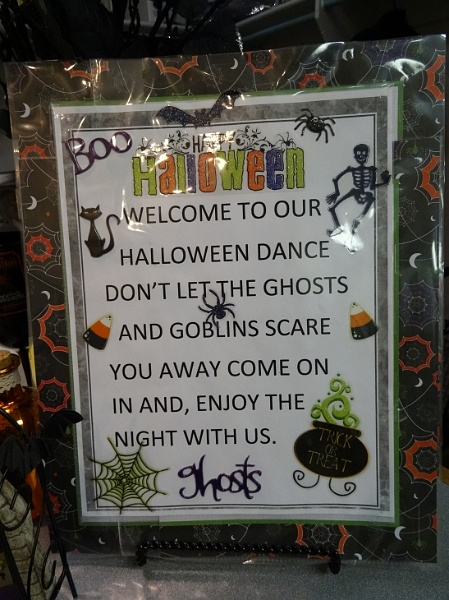 BOO
HAPPY
Halloween
WELCOME TO OUR
HALLOWEEN DANCE
DON'T LET THE GHOSTS
AND GOBLINS SCARE
YOU AWAY COME ON
IN AND, ENJOY THE
NIGHT WITH US.
TRICK
OR
TREAT
ghosts